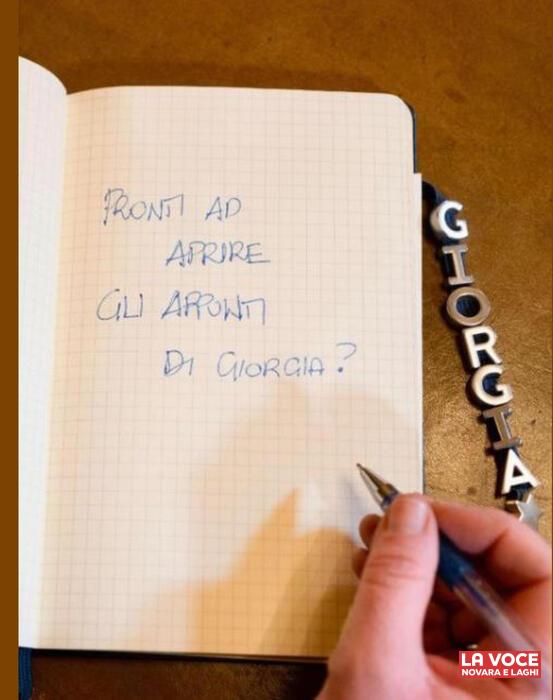 PRONTI AD
APRIRE
GLI APPUNTI
DI GIORGIA?
GIORGIA
LA VOCE
NOVARA E LAGHI